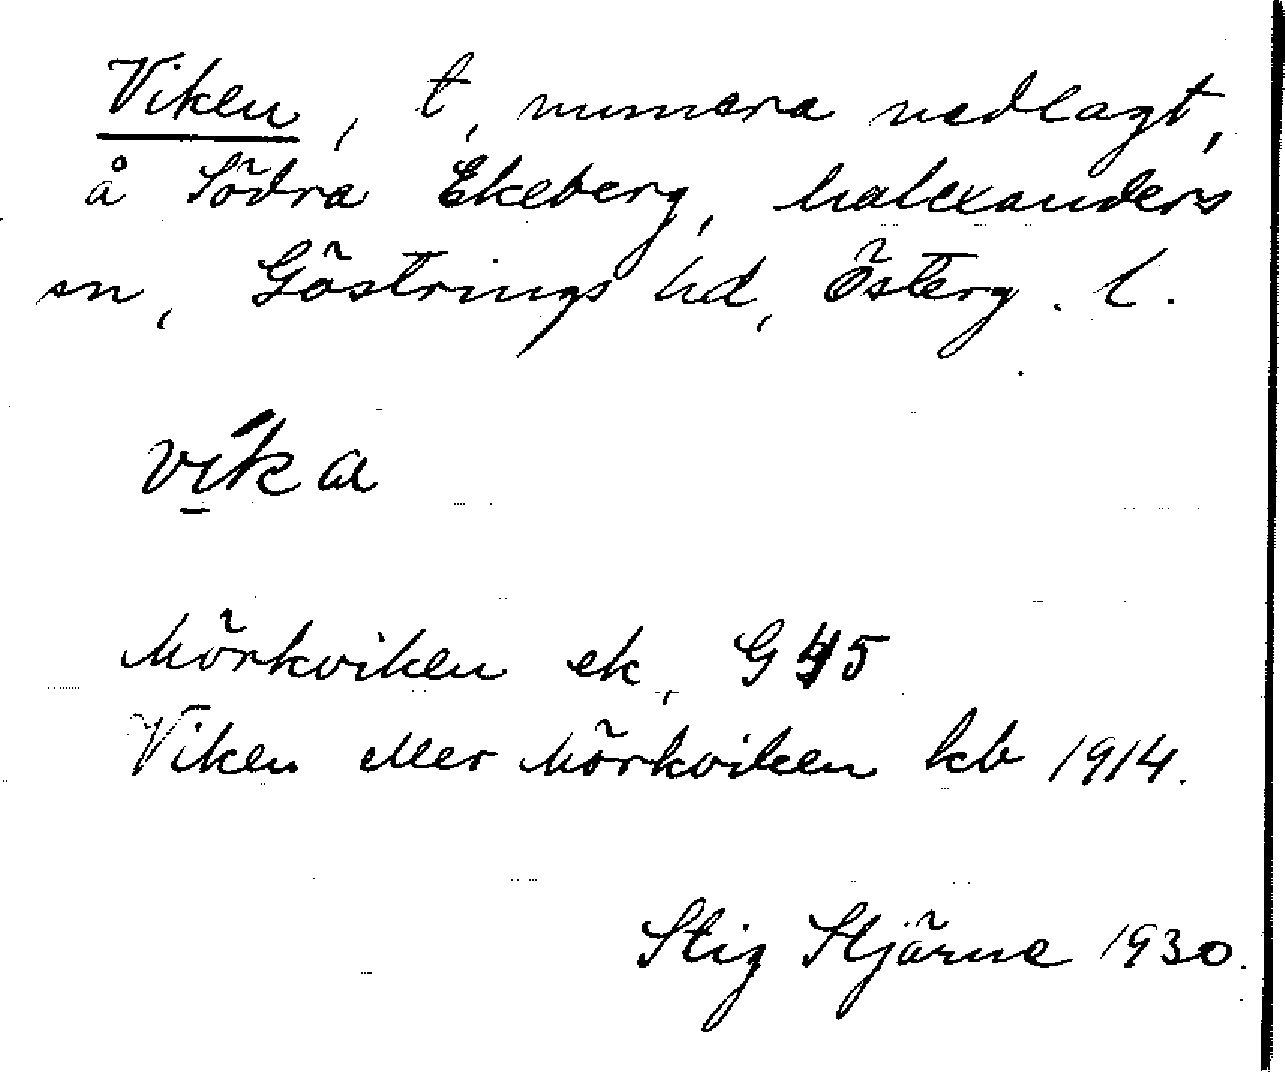 Viken, t, numera nedlagt,
å Södra Ekeberg, Malexanders
sn, Göstrings hd, Österg. l.
víka
Mörkviken ek, G 45
Viken eller Mörkviken kb 1914.
Stig Stjärne 1930.